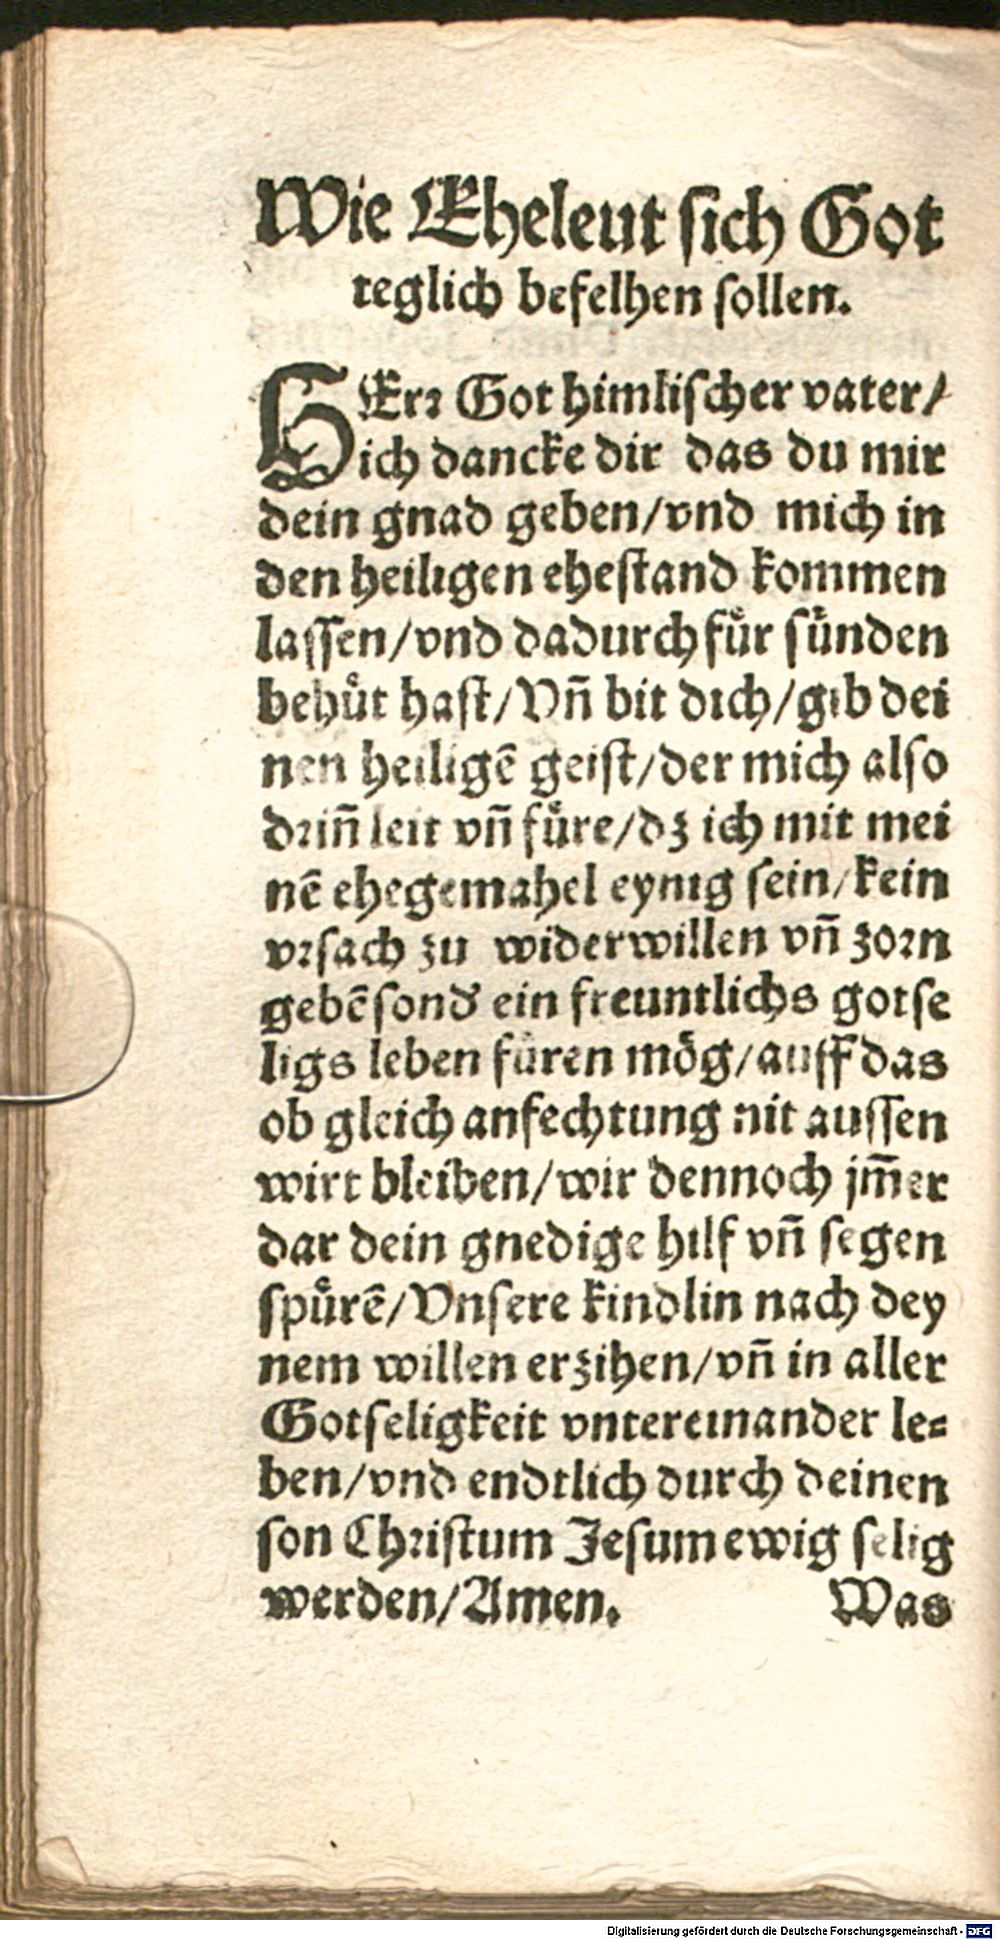 Wie Eheleut sich Got
teglich befelhen sollen.
HErr Got himlischer vater/
ich dancke dir das du mir
dein gnad geben/vnd mich in
den heiligen ehestand kommen
lassen/vnd dadurch fuͤr suͤnden
behuͤt hast/Vñ bit dich/gib dei
nen heiligẽ geist/der mich also
driñ leit vñ fuͤre/dz ich mit mei
nẽ ehegemahel eynig sein/kein
vrsach zu widerwillen vñ zorn
gebẽ sond' ein freuntlichs gotse
ligs leben fuͤren moͤg/auff das
ob gleich anfechtung nit aussen
wirt bleiben/wir dennoch jm̃er
dar dein gnedige hilf vñ segen
spuͤrẽ/Vnsere kindlin nach dey
nem willen erzihen/vñ in aller
Gotseligkeit vntereinander le⸗
ben/vnd endtlich durch deinen
son Christum Jesum ewig selig
werden/Amen. Was
Digitalisierung gefördert durch die Deutsche Forschungsgemeinschaft - DFG